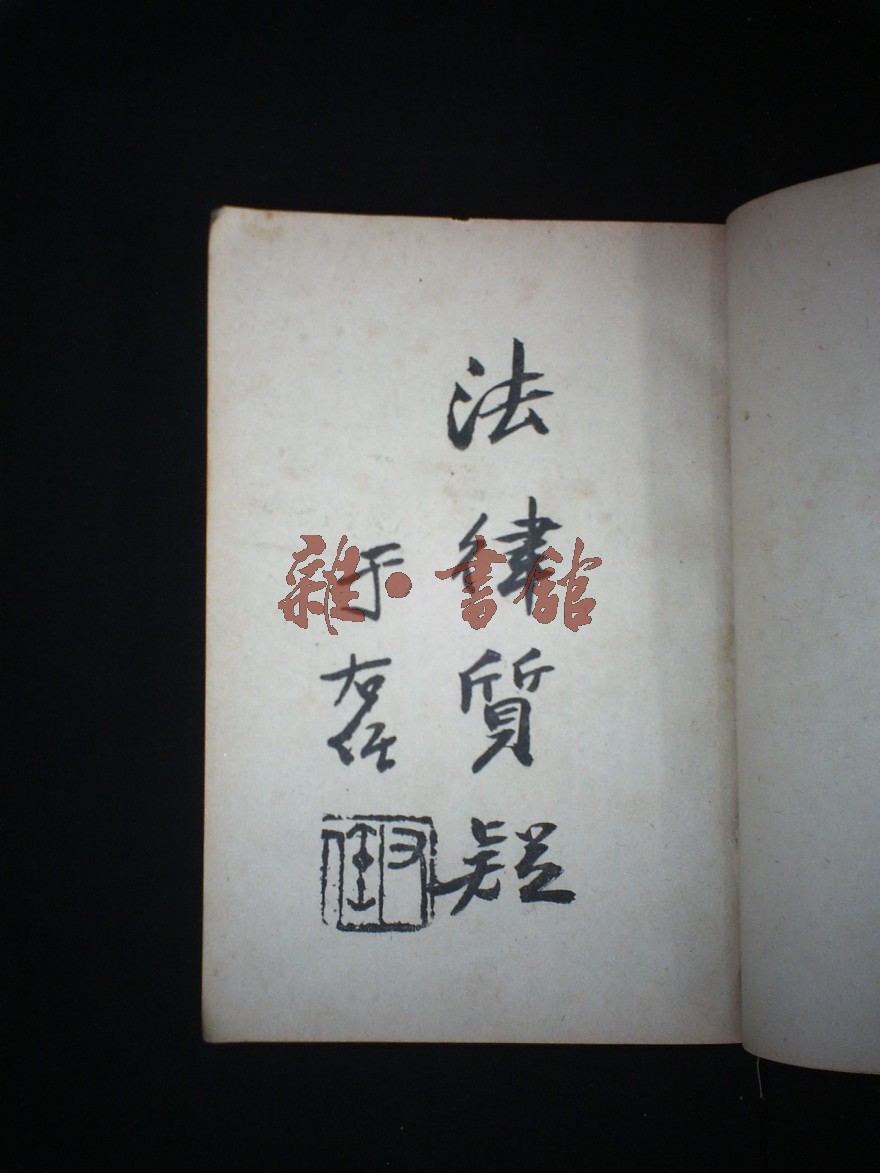 法律質疑
于右任
右任
雜·書館